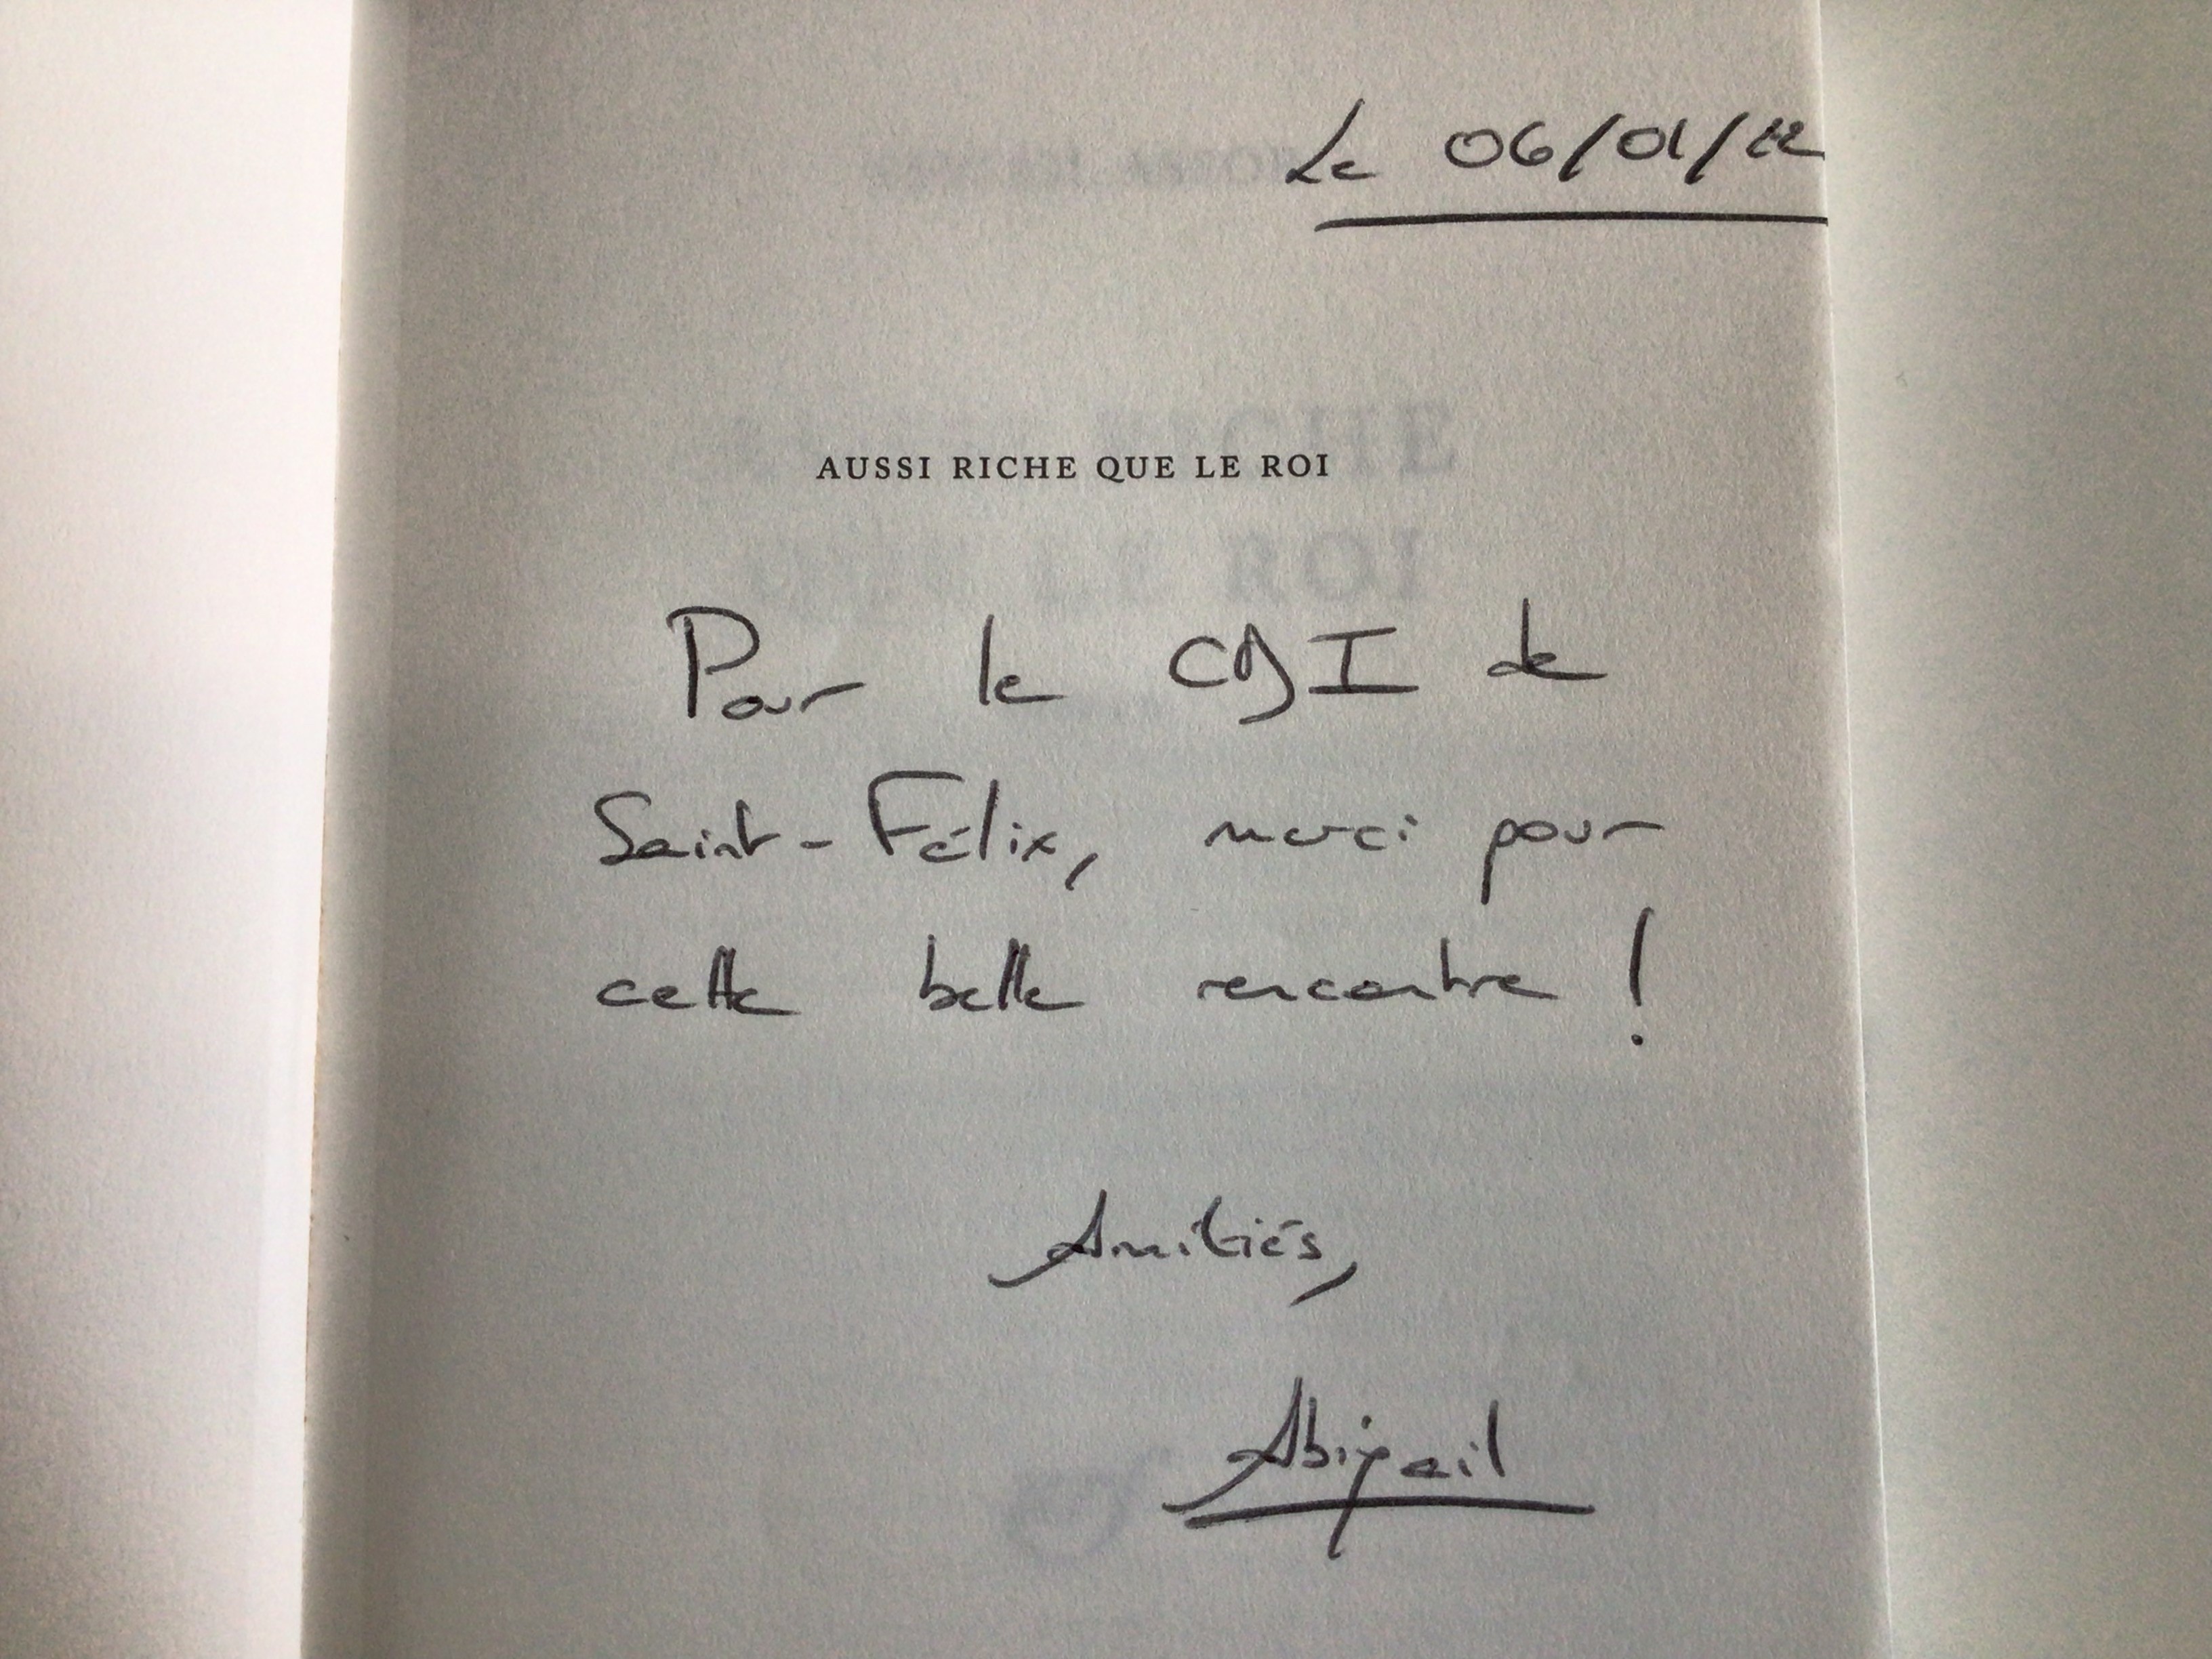 Le 06/01/22
AUSSI RICHE QUE LE ROI
Pour le CDI de
Saint-Félix, merci pour
cette belle rencontre !
Amitiés,
Abigail